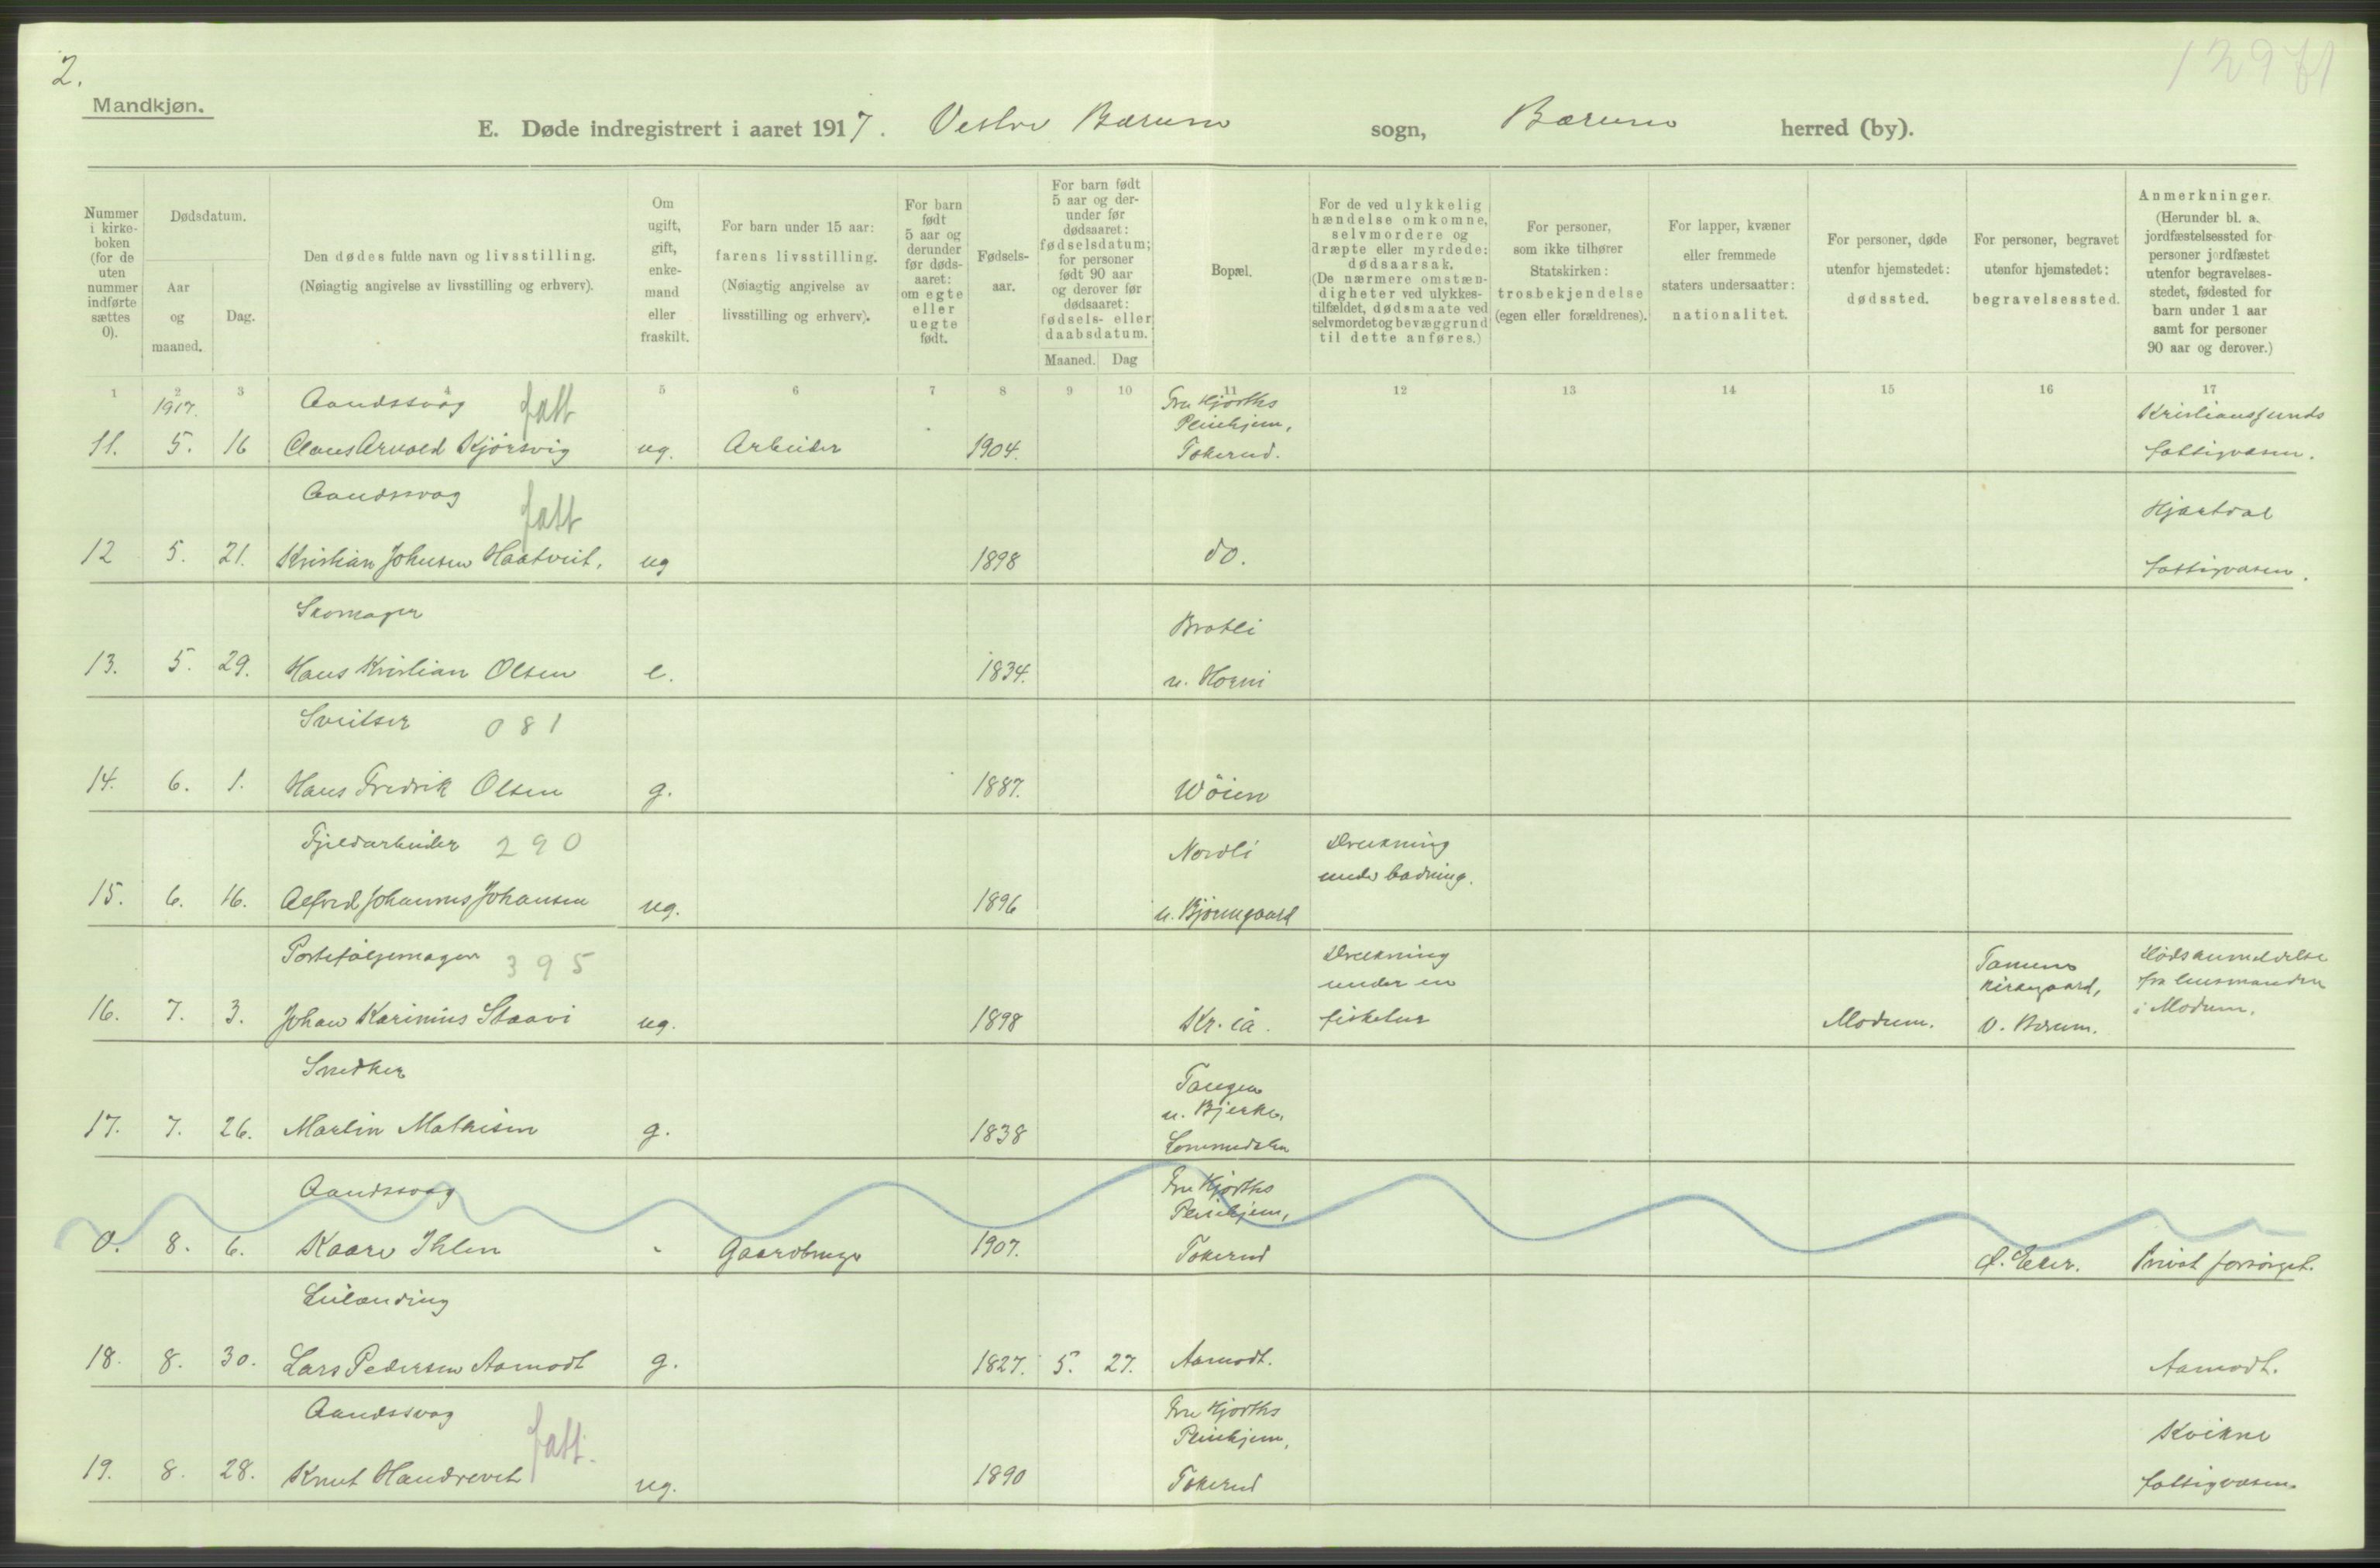 2.
12971
Mandkjøn.
E. Døde indregistrert i aaret 1917. Vestre Bærum sogn, Bærum herred (by).
Nummer i kirke-boken (for de uten nummer indførte sættes 0).
Dødsdatum.
Aar og maaned.
Dag.
Den dødes fulde navn og livsstilling.
(Nøiagtig angivelse av livsstilling og erhverv).
Om ugift, gift, enke-mand eller fraskilt.
For barn under 15 aar:
farens livsstilling.
(Nøiagtig angivelse av livsstilling og erhverv).
For barn født 5 aar og derunder før døds-aaret: om egte eller uegte født.
Fødsels-aar.
For barn født 5 aar og der-under før dødsaaret: fødselsdatum; for personer født 90 aar og derover før dødsaaret: fødsels- eller daabsdatum.
Maaned. Dag
Bopæl.
For de ved ulykkelig hændelse omkomne, selvmordere og dræpte eller myrdede: dødsaarsak.
(De nærmere omstæn-digheter ved ulykkes-tilfældet, dødsmaate ved selvmordet og bevæggrund til dette anføres.)
For personer, som ikke tilhører Statskirken: trosbekjendelse (egen eller forældrenes).
For lapper, kvæner eller fremmede staters undersaatter: nationalitet.
For personer, døde utenfor hjemstedet: dødssted.
For personer, begravet utenfor hjemstedet: begravelsessted.
Anmerkninger.
(Herunder bl. a. jordfæstelsessted for personer jordfæstet utenfor begravelses-stedet, fødested for barn under 1 aar samt for personer 90 aar og derover.)
1 2 3 4 5 6 7 8 9 10 11 12 13 14 15 16 17
1917. Aandssvag fatt Fru Hjorths Pleiehjem, Kristianssunds
11. 5. 16 Claus Arvold Kjörsvig ug. Arbeider 1904. Tokerud. fattigvæsen.
Aandssvag fatt Hjartdal
12 5. 21. Kristian Johnsen Haatveit. ug 1898 do. fattigvæsen.
Skomager Bratli
13. 5. 29. Hans Kristian Olsen e. 1834. u. Horni
Sveitser 081
14. 6. 1. Hans Fredrik Olsen g. 1887. Wöien
Fjeldarbeider 290 Nordli Drukning under badning.
15. 6. 16. Alfred Johannes Johansen ug. 1896 u. Bjørumgaard
Porteføljemager 395 Drukning under en Tanums kirkegaard, Dødsanmeldelse fra lensmanden
16. 7. 3. Johan Karinius Staavi ug. 1898 Kr.ia. fisketur Modum. V. Bærum. i Modum.
Snedker Tangen u. Bjerke,
17. 7. 26. Martin Mathisen g. 1838 Lommedalen
Aandssvag Fru Hjorths Pleiehjem,
0. 8. 6. Kaare Ihlen " Gaardbruger 1907. Tokerud Ø. Eker. Privat forsörget.
Leilænding
18. 8. 30. Lars Pedersen Aamodt g. 1827. 5. 27. Aamodt. Aamodt.
Aandssvag fatt. Fru Hjorths Pleiehjem, Kvikne
19. 8. 28. Knut Handrevet ug. 1890 Tokerud fattigvæsen